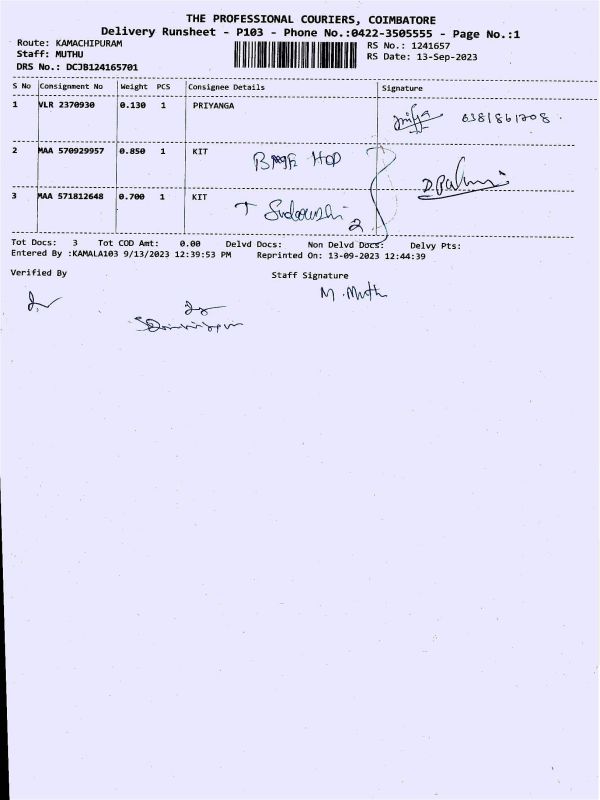 THE PROFESSIONAL COURIERS, COIMBATORE
Delivery Runsheet - P103 - Phone No.:0422-3505555 - Page No.:1
Route: KAMACHIPURAM
Staff: MUTHU
DRS No.: DCJB124165701
RS No.: 1241657
RS Date: 13-Sep-2023
S No Consignment No Weight PCS Consignee Details Signature
1 VLR 2370930 0.130 1 PRIYANGA
2 MAA 570929957 0.850 1 KIT
HOD
3 MAA 571812648 0.700 1 KIT
2
Tot Docs: 3 Tot COD Amt: 0.00 Delvd Docs: Non Delvd Docs: Delvy Pts:
Entered By :KAMALA103 9/13/2023 12:39:53 PM Reprinted On: 13-09-2023 12:44:39
Verified By Staff Signature
M. Muth